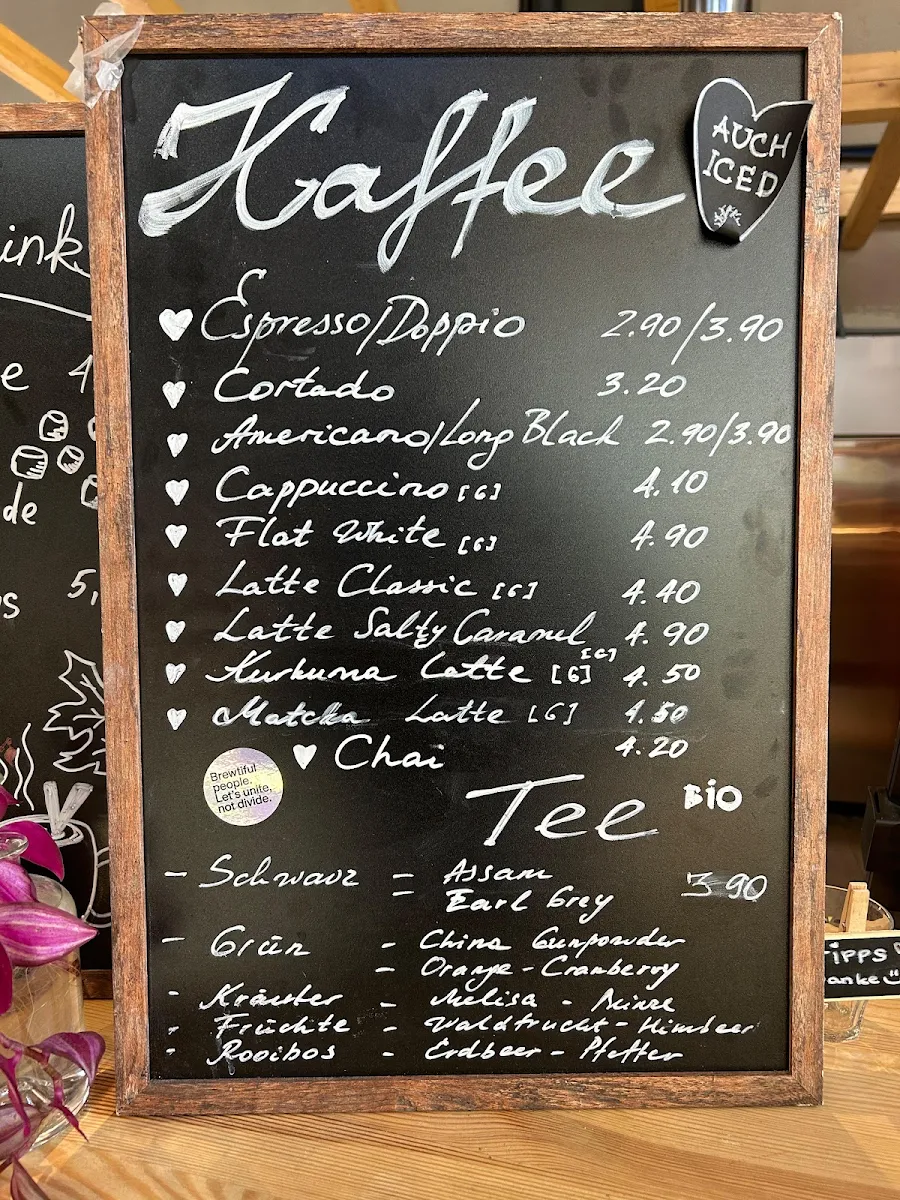 Kaffee
AUCH
ICED
Espresso/Doppio 2.90/3.90
Cortado 3.20
Americano/Long Black 2.90/3.90
Cappuccino [G] 4.10
Flat White [G] 4.90
Latte Classic [G] 4.40
Latte Salty Caramel [G] 4.90
Kurkuma Latte [G] 4.50
Matcha Latte [G] 4.50
Chai 4.20
Brewtiful
people.
Let's unite,
not divide.
Tee BIO
- Schwarz = Assam 3 90
Earl Grey
- Grün - China Gunpowder
- Orange - Cranberry
- Kräuter - Melisa - Minze
- Früchte - Waldfrucht - Himbeer
- Rooibos - Erdbeer - Pfeffer
ink
e 4
de
s 5,
ipps
anke